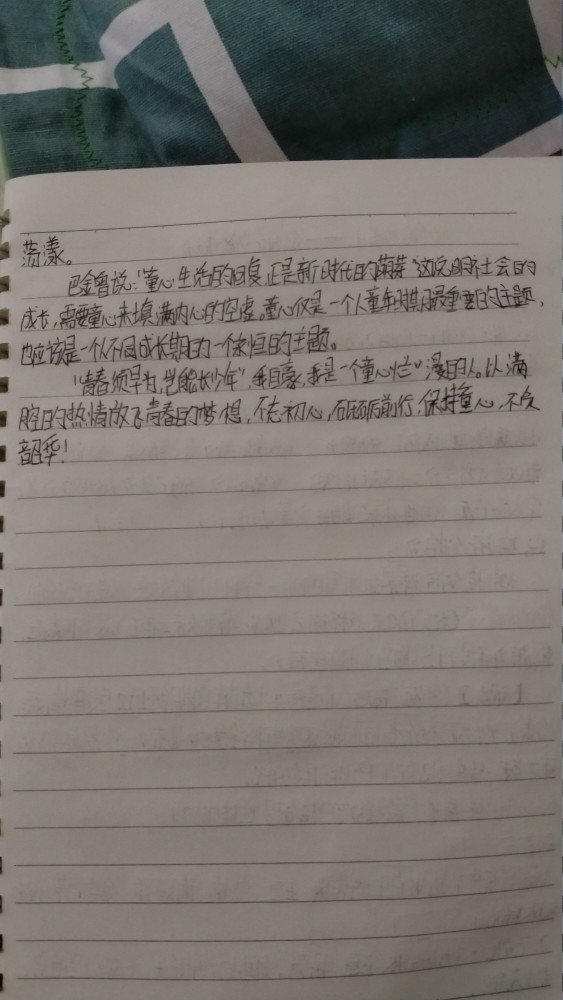 荡漾。
巴金曾说：“童心生活的回复,正是新时代的萌芽”这说明新社会的
成长,需要童心来填满内心的空虚。童心仅是一个人童年时期最重要的主题,
也应该是一个人不同成长期的一个永恒的主题。
“青春须早为,岂能长少年”,我自豪,我是一个童心烂漫的人。以满
腔的热情放飞青春的梦想,不忘初心,砥砺前行,保持童心,不负
韶华!